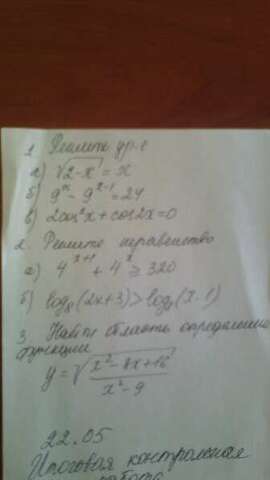 1. Решить ур-е
а) √2-x = x
б) 9^x - 9^(x-1) = 24
в) 2cos²x + cos2x = 0
2. Решите неравенство
а) 4^(x+1) + 4^x ≥ 320
б) log₈(2x+3) > log₈(x-1)
3 Найти область определения
функции
y = √(x² - 8x + 16 / x² - 9)
22.05
Итоговая контрольная
работа